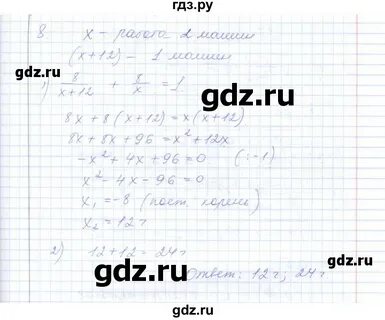 гдз.ру
8 x – работа 2 машин
(x+12) – 1 машин
1) 8/(x+12) + 8/x = 1
8x + 8(x+12) = x(x+12)
8x + 8x + 96 = x² + 12x
-x² + 4x + 96 = 0 (:-1)
x² - 4x - 96 = 0
x₁ = -8 (пост. корень)
x₂ = 12 г
2) 12+12 = 24 г
gdz.ru
gdz.ru
Ответ: 12 г; 24 г
gdz.ru
gdz.ru